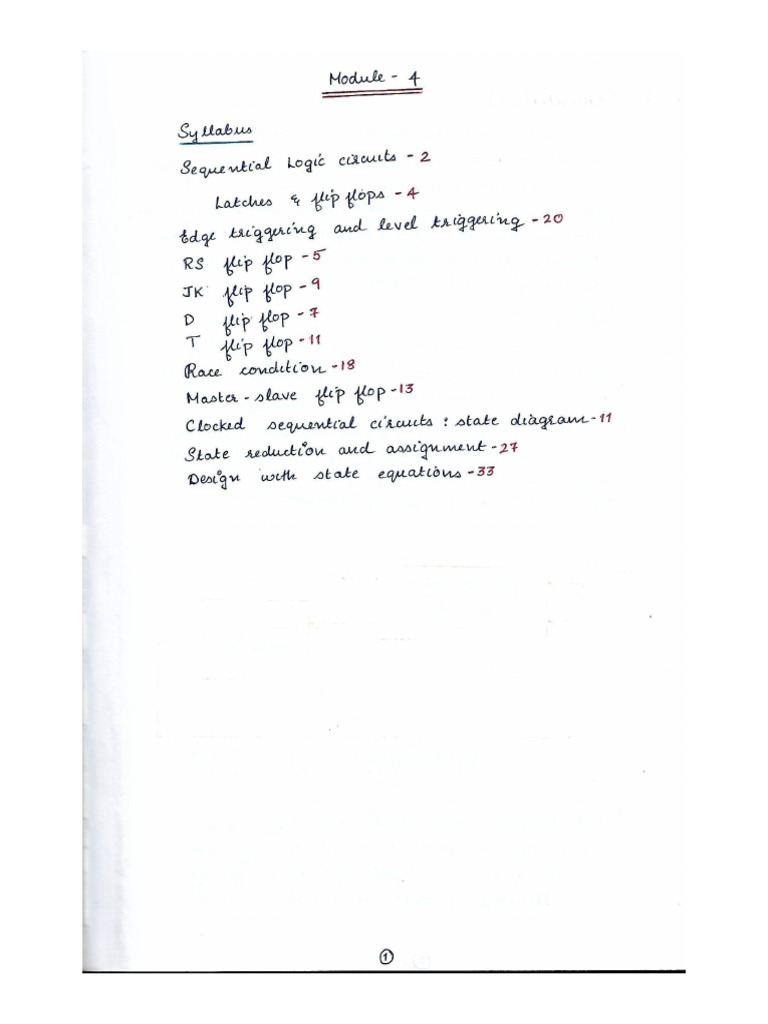 Module - 4
Syllabus
Sequential Logic circuits - 2
Latches & flip flops - 4
Edge triggering and level triggering - 20
RS flip flop - 5
JK flip flop - 9
D flip flop - 7
T flip flop - 11
Race condition - 18
Master - slave flip flop - 13
Clocked sequential circuits : state diagram - 11
State reduction and assignment - 27
Design with state equations - 33
1